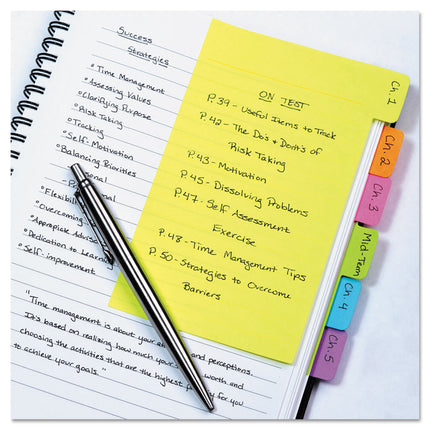 Success
Strategies
Time Management
Assessing Values
Clarifying Purpose
Risk Taking
Tracking
Self-Motivation
Balancing Priorities
Flexibility
Overcoming
Appropriate
Dedication to Learning
Self-improvement
"Time management is about your and perceptions.
It's based on realizing how much your worth and
choosing the activities that are the highest for you
to achieve your goals."
ON TEST
P.39 - Useful Items to Track
P.42 - The Do's & Dont's of
Risk Taking
P.43 - Motivation
P.45 - Dissolving Problems
P.47 - Self Assessment
Exercise
P.48 - Time Management Tips
P.50 - Strategies to Overcome
Barriers
Ch. 1
Ch. 2
Ch. 3
Mid-Term
Ch. 4
Ch. 5